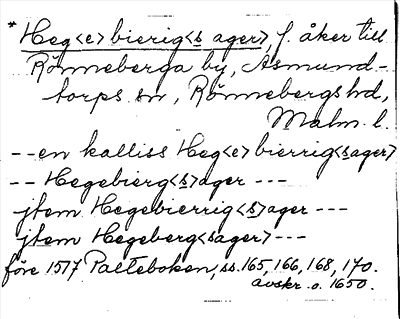 * Heg<e>bierig<s ager>, f. åker till
Rönneberga by, Asmund-
torps sn, Rönnebergs hd,
Malm. l.
-- en kalliss Heg<e>bierrig<sager>
-- Hegebierg<s>ager ---
jtem Hegebierrig<s>ager ---
jtem Hegeberg<sager> ---
före 1517 Palteboken, ss. 165, 166, 168, 170.
avskr. o. 1650.